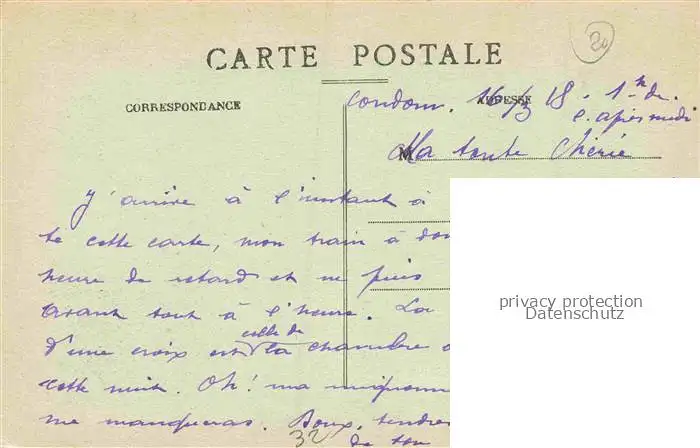 20
CARTE POSTALE
CORRESPONDANCE
ADRESSE
Condom. 16/3 18. 1h de
l'après midi
Ma toute Chérie
J'arrive à l'instant à
te cette carte, mon train à don
heure de retard et ne puis
avant tout à l'heure. La
celle de
d'une croix est la chambre
cette nuit. Oh! ma mignonn
me manqueras. Doux, tendres
de ton
32
privacy protection
Datenschutz